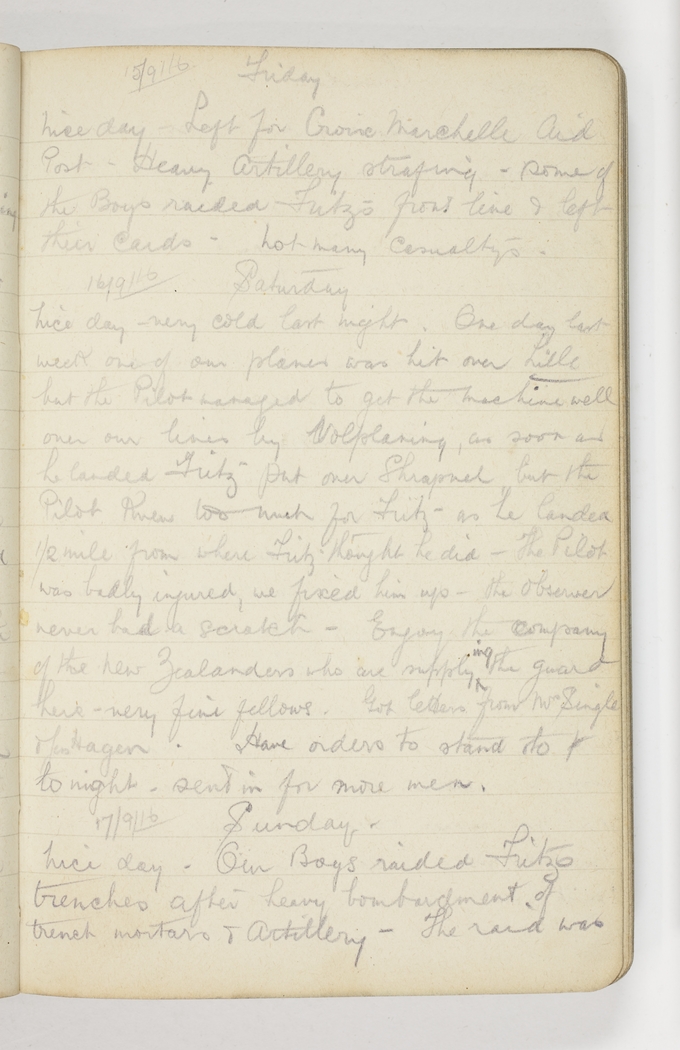 15/9/16 Friday
Nice day - Left for Croix Marchelle Aid
Post - Heavy Artillery strafing - some of
the Boys raided Fritz's front line & left
their cards - not many casualtys.
16/9/16. Saturday
Nice day - very cold last night. One day last
week one of our planes was hit over Lille
but the Pilot managed to get the machine well
over our lines by Volplaning, as soon as
he landed Fritz put over Shrapnel, but the
Pilot Knew too much for Fritz - as he landed
1/2 mile from where Fritz thought he did - The Pilot
was badly injured, we fixed him up - the observer
never had a scratch - Enjoy the company
of the New Zealanders who are supplying the guard
here - very fine fellows. Got letters from Mrs Single
Hagen. Have orders to stand to
tonight - sent in for more men.
17/9/16 Sunday.
Nice day - Our Boys raided Fritzs
trenches after heavy bombardment of
trench mortars & Artillery - The raid was